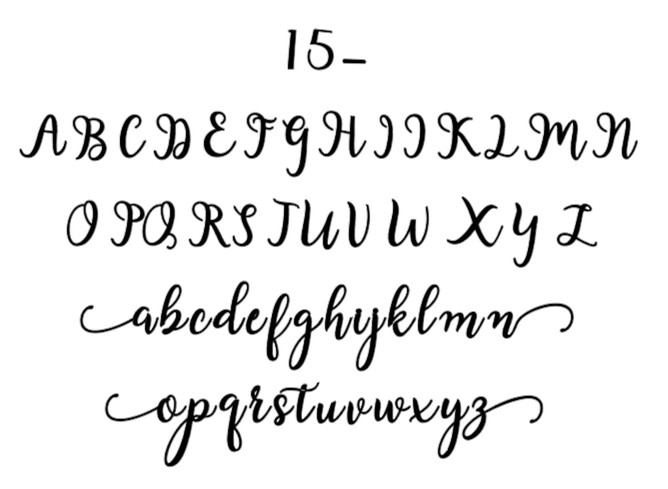 15-
A B C D E F G H I J K L M N
O P Q R S T U V W X Y Z
abcdefghijklmn
opqrstuvwxyz